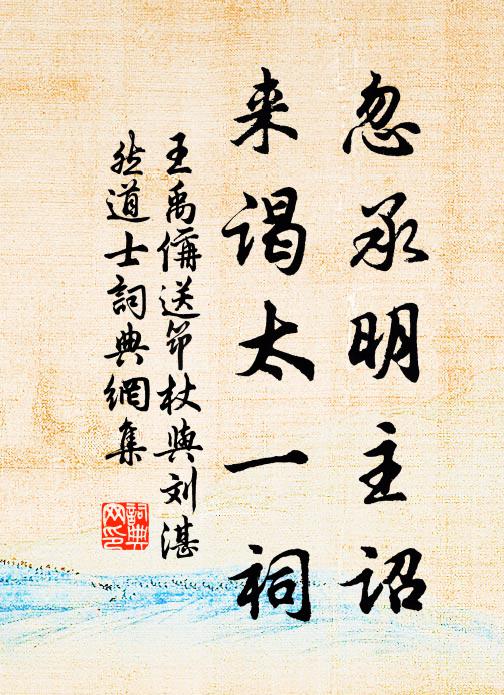 忽承明主诏
来谒太一祠
王禹偁送筇杖與刘湛
然道士詞典網集
詞典
网印